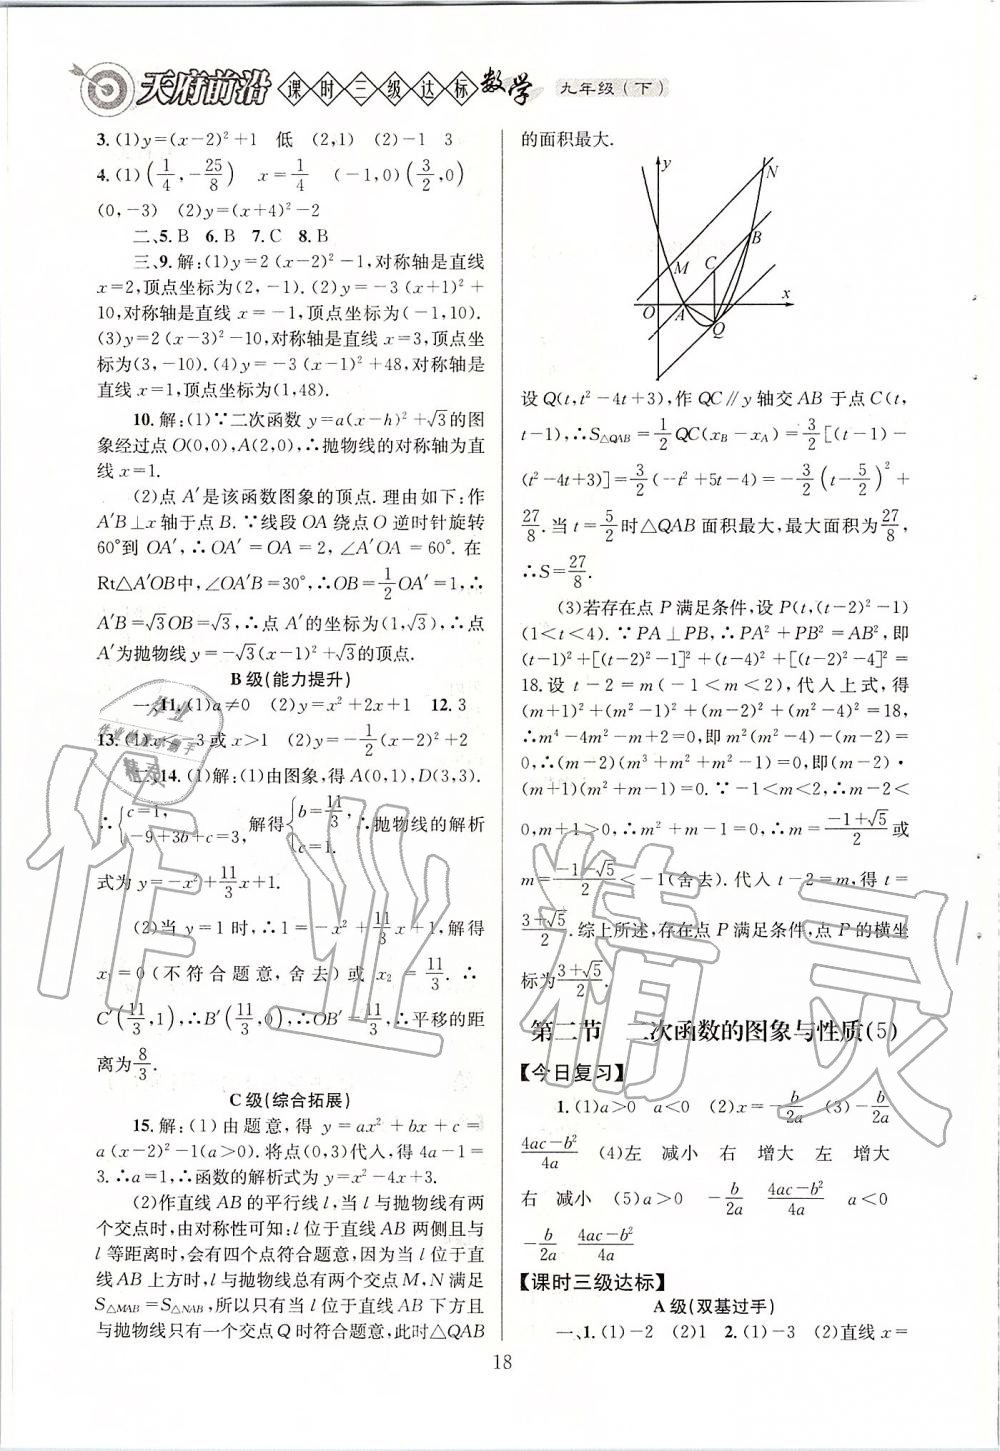 天府前沿 课时三级达标 数学 九年级(下)
3.(1)y=(x-2)²+1 低 (2,1) (2)-1 3
4.(1)(1/4,-25/8) x=1/4 (-1,0)(3/2,0)
(0,-3) (2)y=(x+4)²-2
二、5.B 6.B 7.C 8.B
三、9.解:(1)y=2(x-2)²-1,对称轴是直线
x=2,顶点坐标为(2,-1).(2)y=-3(x+1)²+
10,对称轴是直线x=-1,顶点坐标为(-1,10).
(3)y=2(x-3)²-10,对称轴是直线x=3,顶点坐
标为(3,-10).(4)y=-3(x-1)²+48,对称轴是
直线x=1,顶点坐标为(1,48).
10.解:(1)∵二次函数y=a(x-h)²+√3的图
象经过点O(0,0),A(2,0),∴抛物线的对称轴为直
线x=1.
(2)点A′是该函数图象的顶点.理由如下:作
A′B⊥x轴于点B.∵线段OA绕点O逆时针旋转
60°到OA′,∴OA′=OA=2,∠A′OA=60°.在
Rt△A′OB中,∠OA′B=30°,∴OB=1/2OA′=1,∴
A′B=√3OB=√3,∴点A′的坐标为(1,√3),∴点
A′为抛物线y=-√3(x-1)²+√3的顶点.
B级(能力提升)
一、11.(1)a≠0 (2)y=x²+2x+1 12.3
13.(1)x<-3或x>1 (2)y=-1/2(x-2)²+2
二、14.(1)解:(1)由图象,得A(0,1),D(3,3).
∴{c=1, -9+3b+c=3, 解得{b=11/3, c=1. ∴抛物线的解析
式为y=-x²+11/3x+1.
(2)当y=1时,∴1=-x²+11/3x+1,解得
x₁=0(不符合题意,舍去)或x₂=11/3.∴
C′(11/3,1),∴B′(11/3,0),∴OB′=11/3,∴平移的距
离为8/3.
C级(综合拓展)
15.解:(1)由题意,得y=ax²+bx+c=
a(x-2)²-1(a>0).将点(0,3)代入,得4a-1=
3.∴a=1,∴函数的解析式为y=x²-4x+3.
(2)作直线AB的平行线l,当l与抛物线有两
个交点时,由对称性可知:l位于直线AB两侧且与
l等距离时,会有四个点符合题意,因为当l位于直
线AB上方时,l与抛物线总有两个交点M,N满足
S△MAB=S△NAB,所以只有当l位于直线AB下方且
与抛物线只有一个交点Q时符合题意,此时△QAB
的面积最大.
y
N
B
M
C
O
A
Q
x
设Q(t,t²-4t+3),作QC∥y轴交AB于点C(t,
t-1),∴S△QAB=1/2QC(xB-xA)=3/2[(t-1)-
(t²-4t+3)]=3/2(-t²+5t-4)=-3/2(t-5/2)²+
27/8.当t=5/2时△QAB面积最大,最大面积为27/8,
∴S=27/8.
(3)若存在点P满足条件,设P(t,(t-2)²-1)
(1<t<4).∵PA⊥PB,∴PA²+PB²=AB²,即
(t-1)²+[(t-2)²-1]²+(t-4)²+[(t-2)²-4]²=
18.设t-2=m(-1<m<2),代入上式,得
(m+1)²+(m²-1)²+(m-2)²+(m²-4)²=18,
∴m⁴-4m²-m+2=0,即m²(m²-4)-(m-2)=
0,∴(m-2)(m³+2m²-1)=0,即(m-2)·
(m+1)(m²+m-1)=0.∵-1<m<2,∴m-2<
0,m+1>0,∴m²+m-1=0,∴m=(-1+√5)/2或
m=(-1-√5)/2<-1(舍去).代入t-2=m,得t=
(3+√5)/2.综上所述,存在点P满足条件,点P的横坐
标为(3+√5)/2.
第二节 二次函数的图象与性质(5)
【今日复习】
1.(1)a>0 a<0 (2)x=-b/2a (3)-b/2a
(4ac-b²)/4a (4)左 减小 右 增大 左 增大
右 减小 (5)a>0 -b/2a (4ac-b²)/4a a<0
-b/2a (4ac-b²)/4a
【课时三级达标】
A级(双基过手)
一、1.(1)-2 (2)1 2.(1)-3 (2)直线x=
18
作业精灵